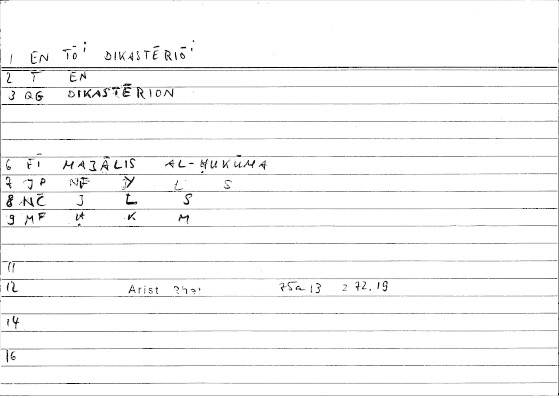 1 EN TŌⁱ DIKASTĒRIŌⁱ
2 T EN
3 QG DIKASTĒRION
6 FĪ MAJĀLIS AL-ḤUKŪMA
7 JP NF Y L S
8 NČ J L S
9 MF Ḥ K M
11
12 Arist 75a13 272.19
14
16